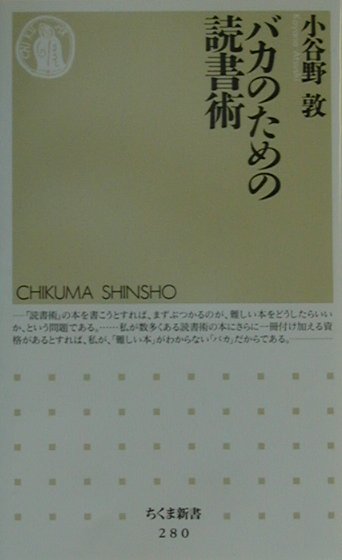 小谷野 敦
バカのための
読書術
CHIKUMA SHINSHO
―「読書術」の本を書こうとすれば、まずぶつかるのが、難しい本をどうしたらいい
か、という問題である。……私が数多くある読書術の本にさらに一冊付け加える資
格があるとすれば、私が、「難しい本」がわからない「バカ」だからである。―
ちくま新書
280